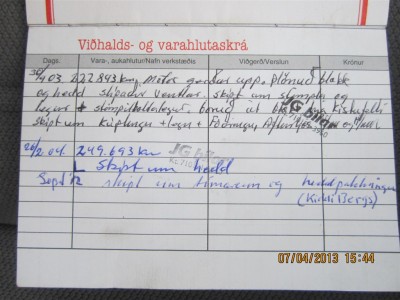 Viðhalds- og varahlutaskrá
Dags. Vara-, aukahlutur/Nafn verkstæðis Viðgerð/Verslun Krónur
03. 222.843 km, Motor upp. Plönuð blokk
og hedd slípaðir ventlar. skipt um stimpla og
legur + stimpilboltalegur, borað út
skipt um kúplingu + legu +
JG bílar
20/2 04. 249.693 km
JG
skipt um hedd
Sept 12 skipt um tímareim og heddpakkningu
(Kiddi Bergs)
07/04/2013 15:44